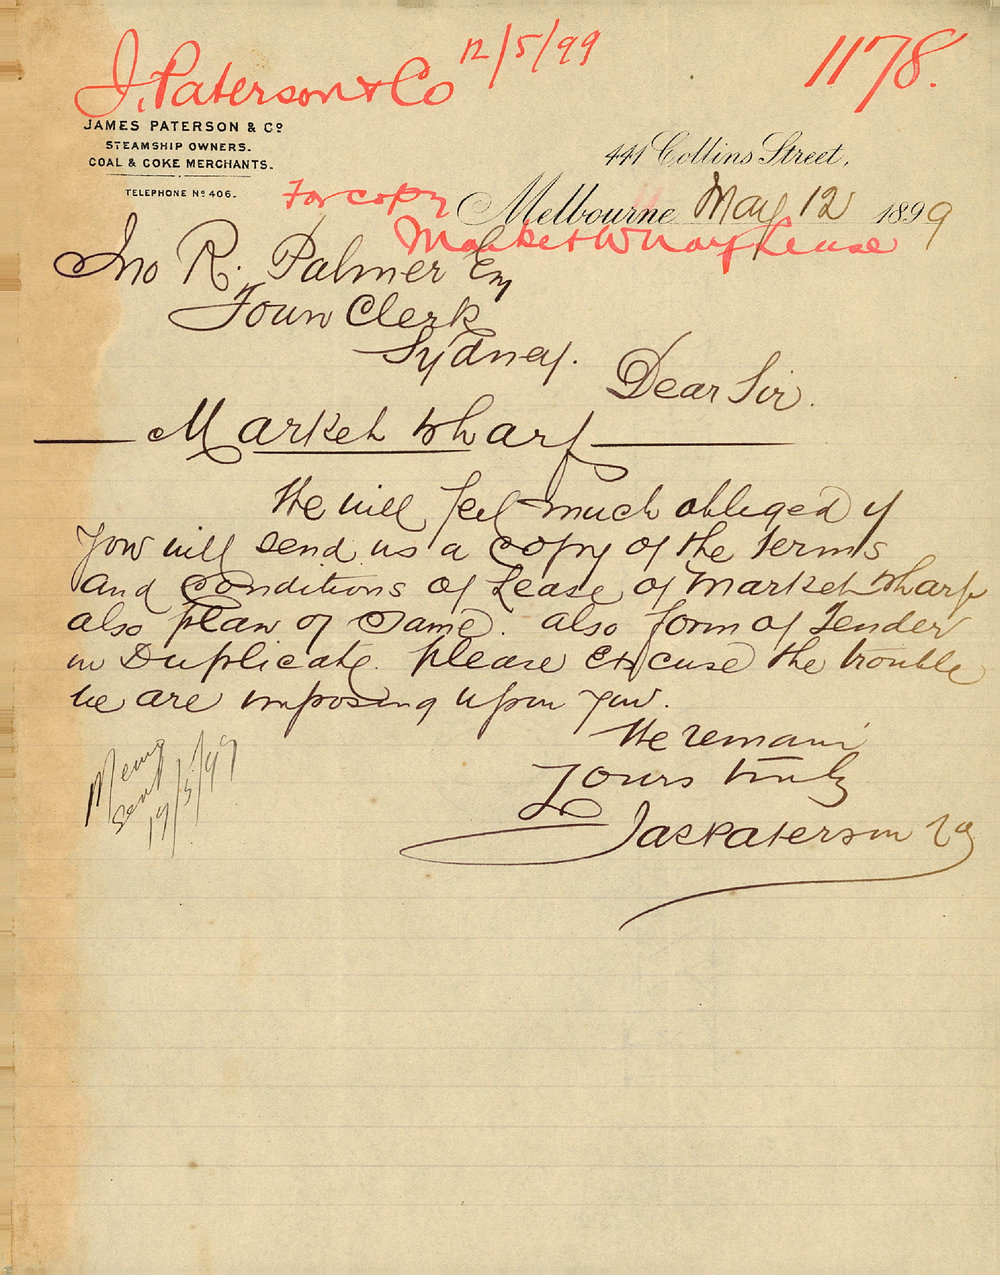 J. Paterson & Co 12/5/99 1178.
JAMES PATERSON & Co
STEAMSHIP OWNERS.
COAL & COKE MERCHANTS.
TELEPHONE No 406.
441 Collins Street,
Melbourne May 12 1899
For copy
Market Wharf Lease
Jno R. Palmer Esq
Town Clerk
Sydney.
Dear Sir.
Market Wharf
We will feel much obliged if
you will send us a copy of the Terms
and Conditions of Lease of Market Wharf
also plan of Same. also form of Tender
in Duplicate. please excuse the trouble
we are imposing upon you.
We remain
Yours truly
Jas Paterson & Co
Memo
sent
19/5/99